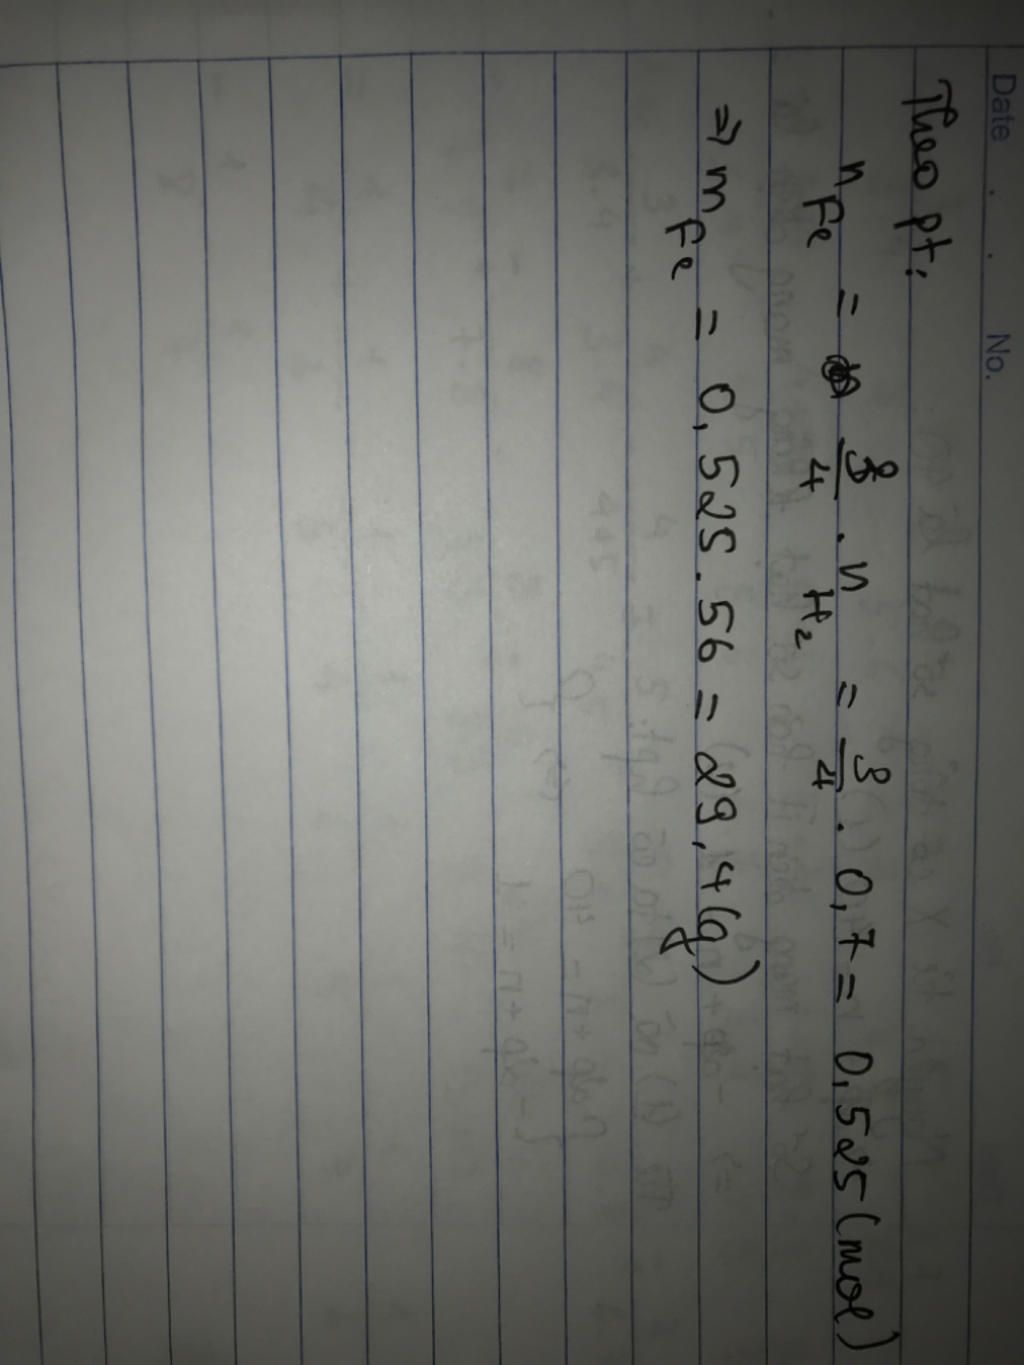 Date . . No.
Theo pt:
n Fe = 3/4 . n H2 = 3/4 . 0,7 = 0,525 (mol)
⇒ m Fe = 0,525 . 56 = 29,4 (g)